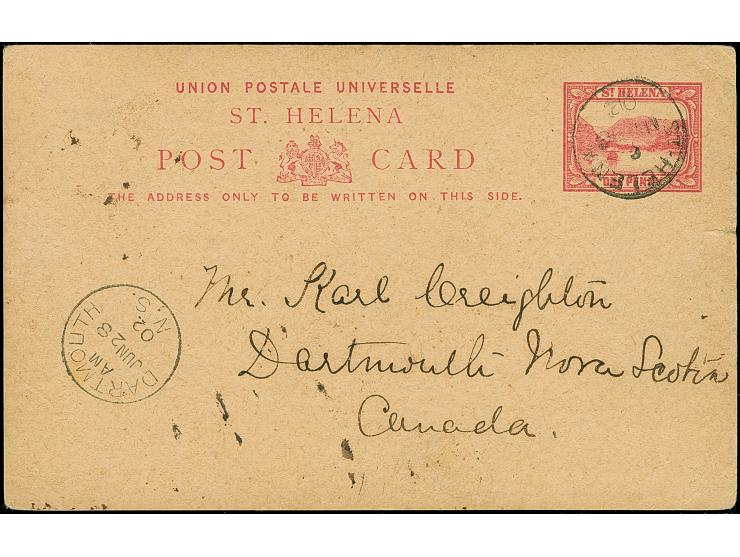 UNION POSTALE UNIVERSELLE
ST. HELENA
POST CARD
THE ADDRESS ONLY TO BE WRITTEN ON THIS SIDE.
ST. HELENA
ONE PENNY
ST. HELENA
02
Mr. Karl Creighton
Dartmouth Nova Scotia
Canada.
DARTMOUTH N.S.
AM
JUN 23
02